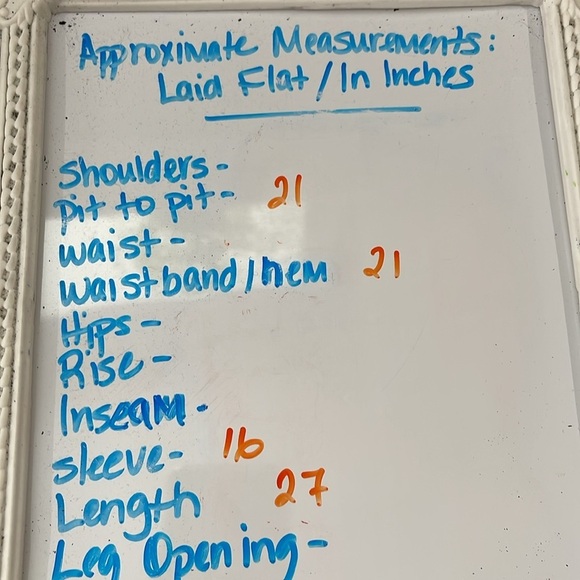 Approximate Measurements:
Laid Flat/In Inches
Shoulders-
Pit to pit- 21
waist-
waistband/hem 21
Hips-
Rise-
Inseam-
sleeve- 16
Length 27
Leg Opening-